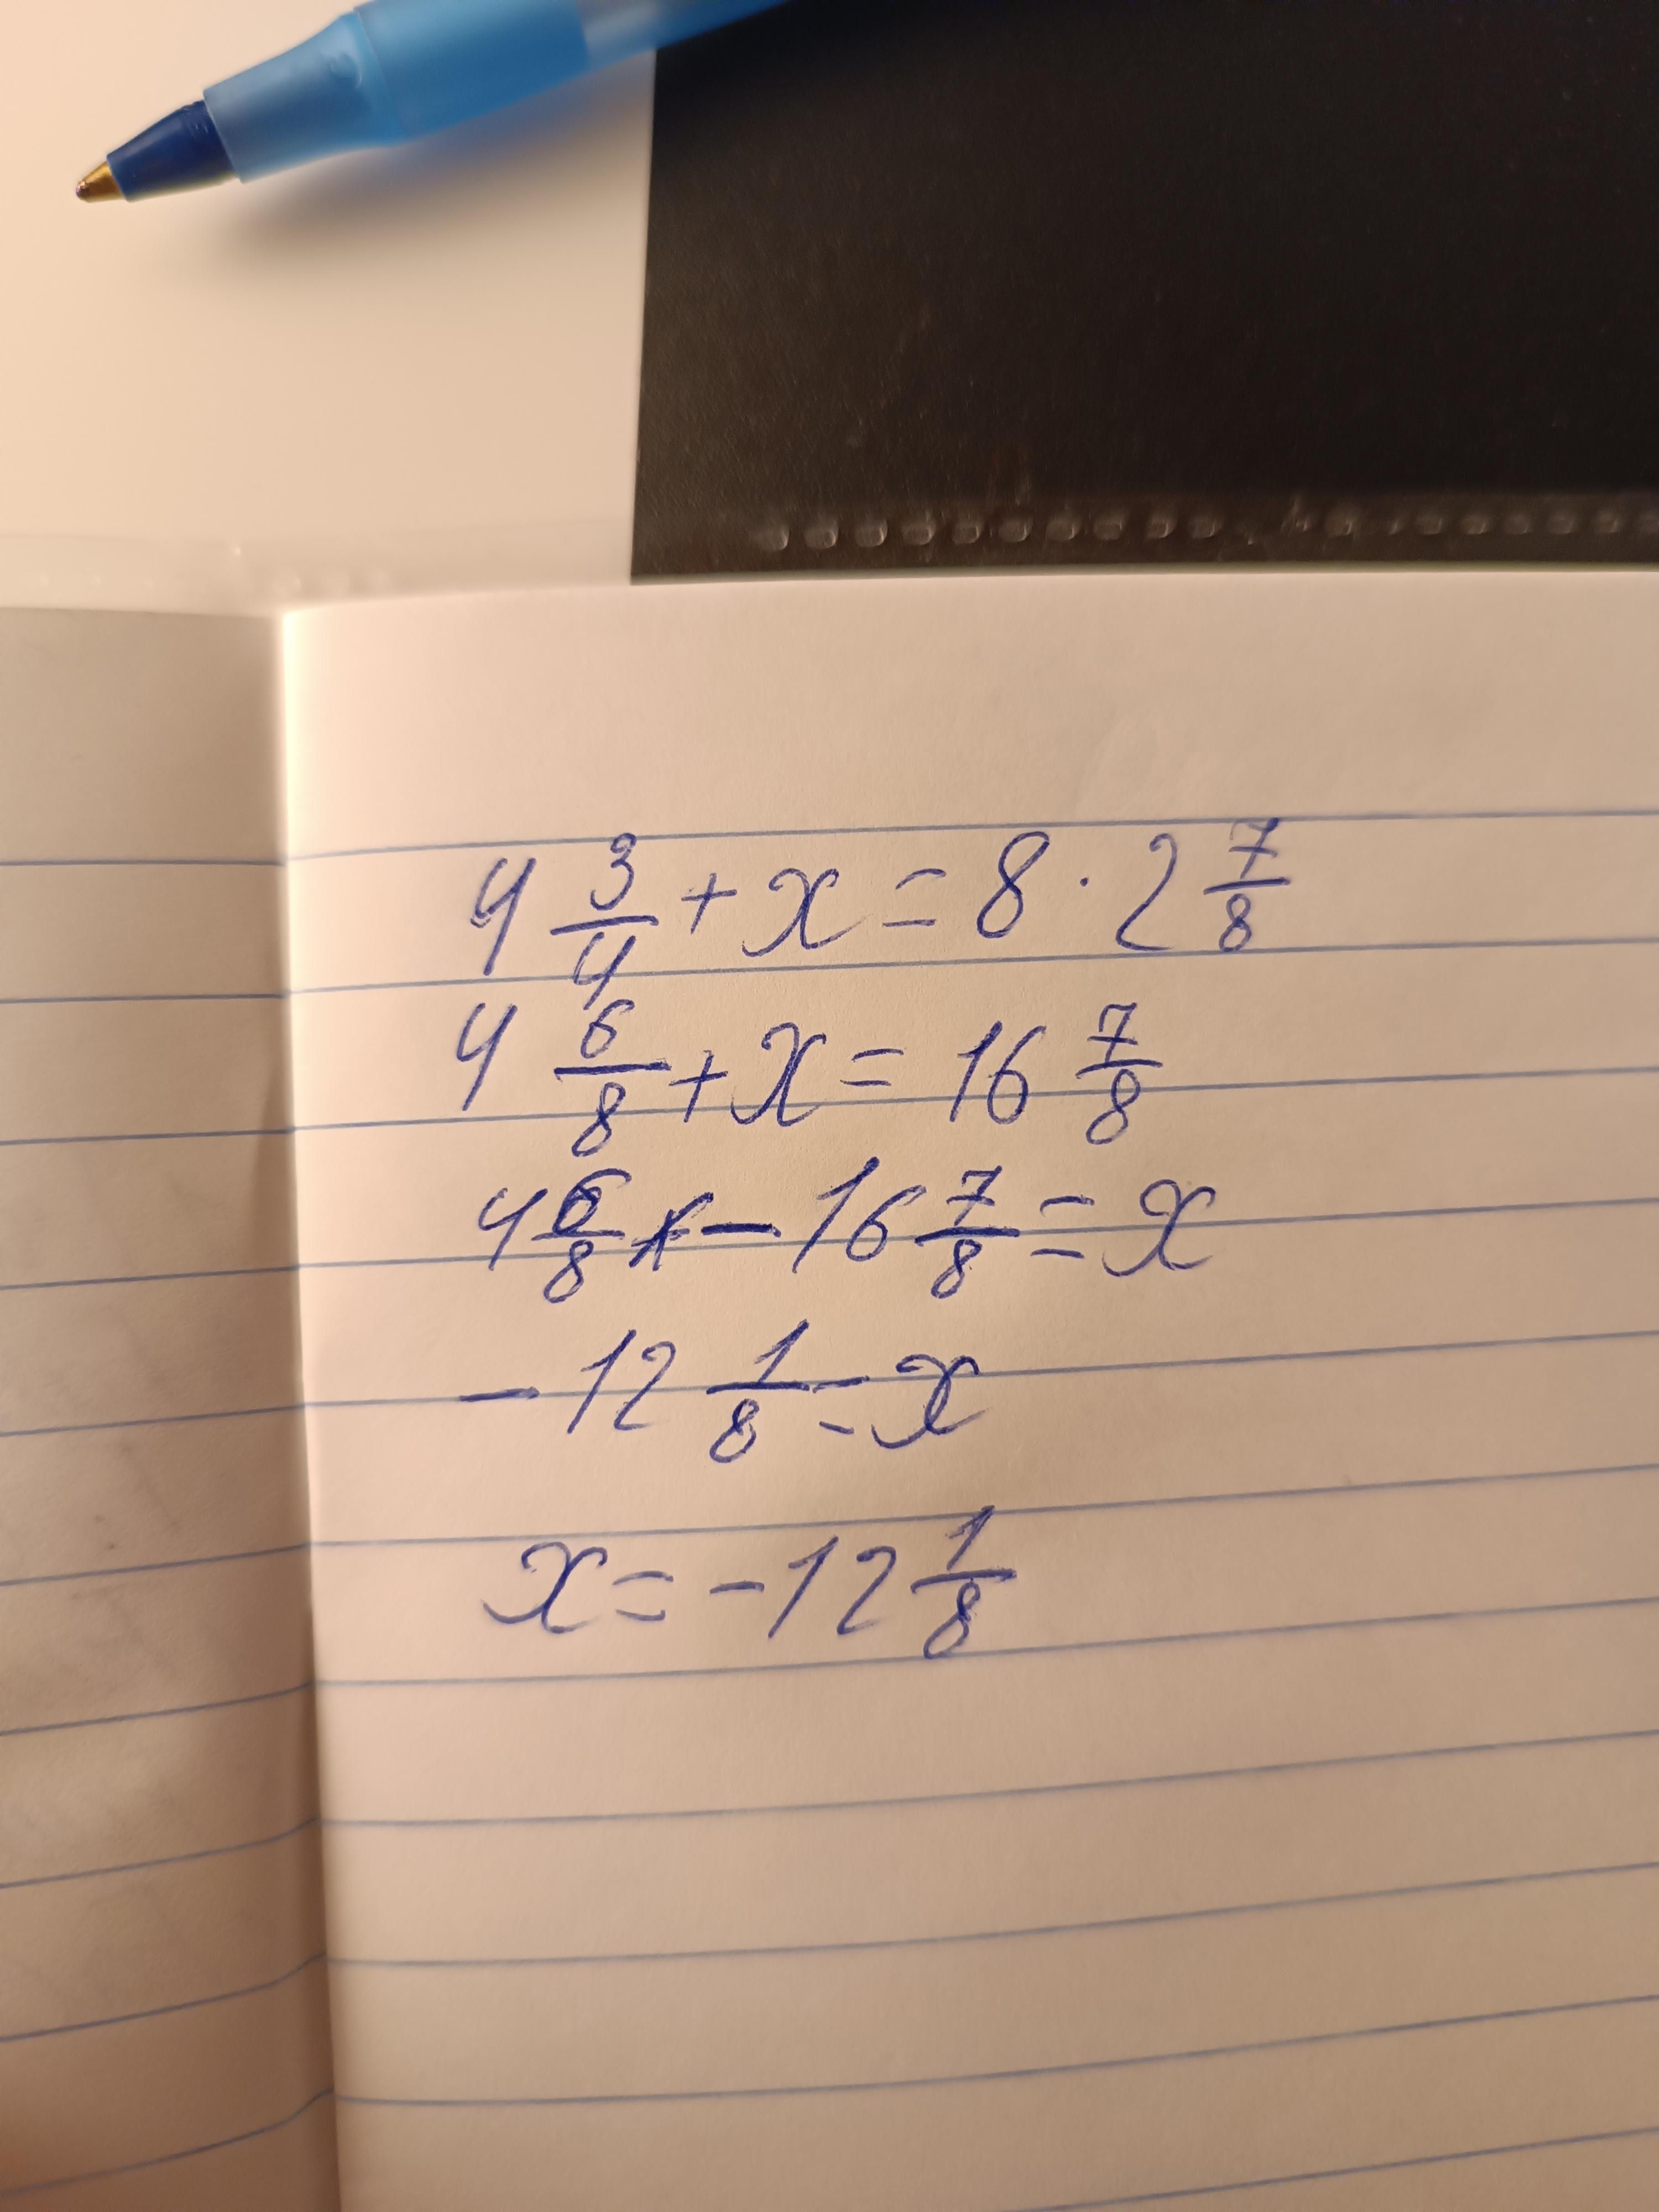 4 3/4 + x = 8 · 2 7/8
4 6/8 + x = 16 7/8
4 6/8 - 16 7/8 = x
- 12 1/8 = x
x = - 12 1/8